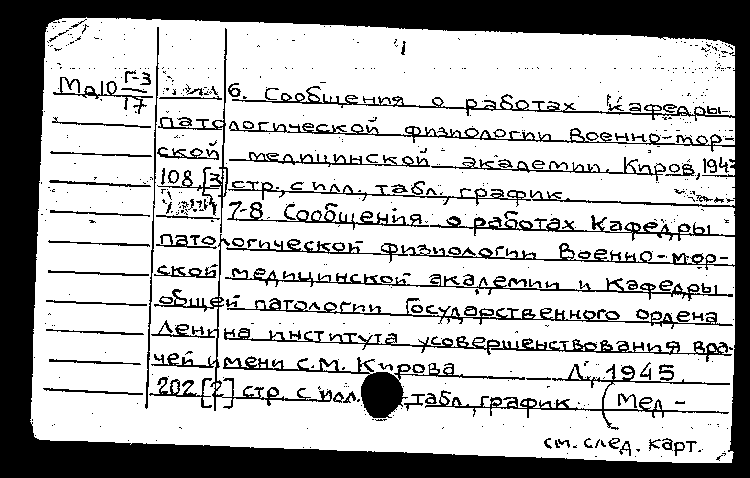 4
Мд10 Г-3/17
6. Сообщения о работах Кафедры
патологической физиологии Военно-мор-
ской медицинской академии. Киров, 194
108, [3] стр., с илл., табл., график.
7-8 Сообщения о работах Кафедры
патологической физиологии Военно-мор-
ской медицинской академии и Кафедры
общей патологии Государственного ордена
Ленина института усовершенствования вра-
чей имени С.М. Кирова. Л., 1945.
202 [2] стр. с илл. , табл., график. (Мед-
см. след. карт.